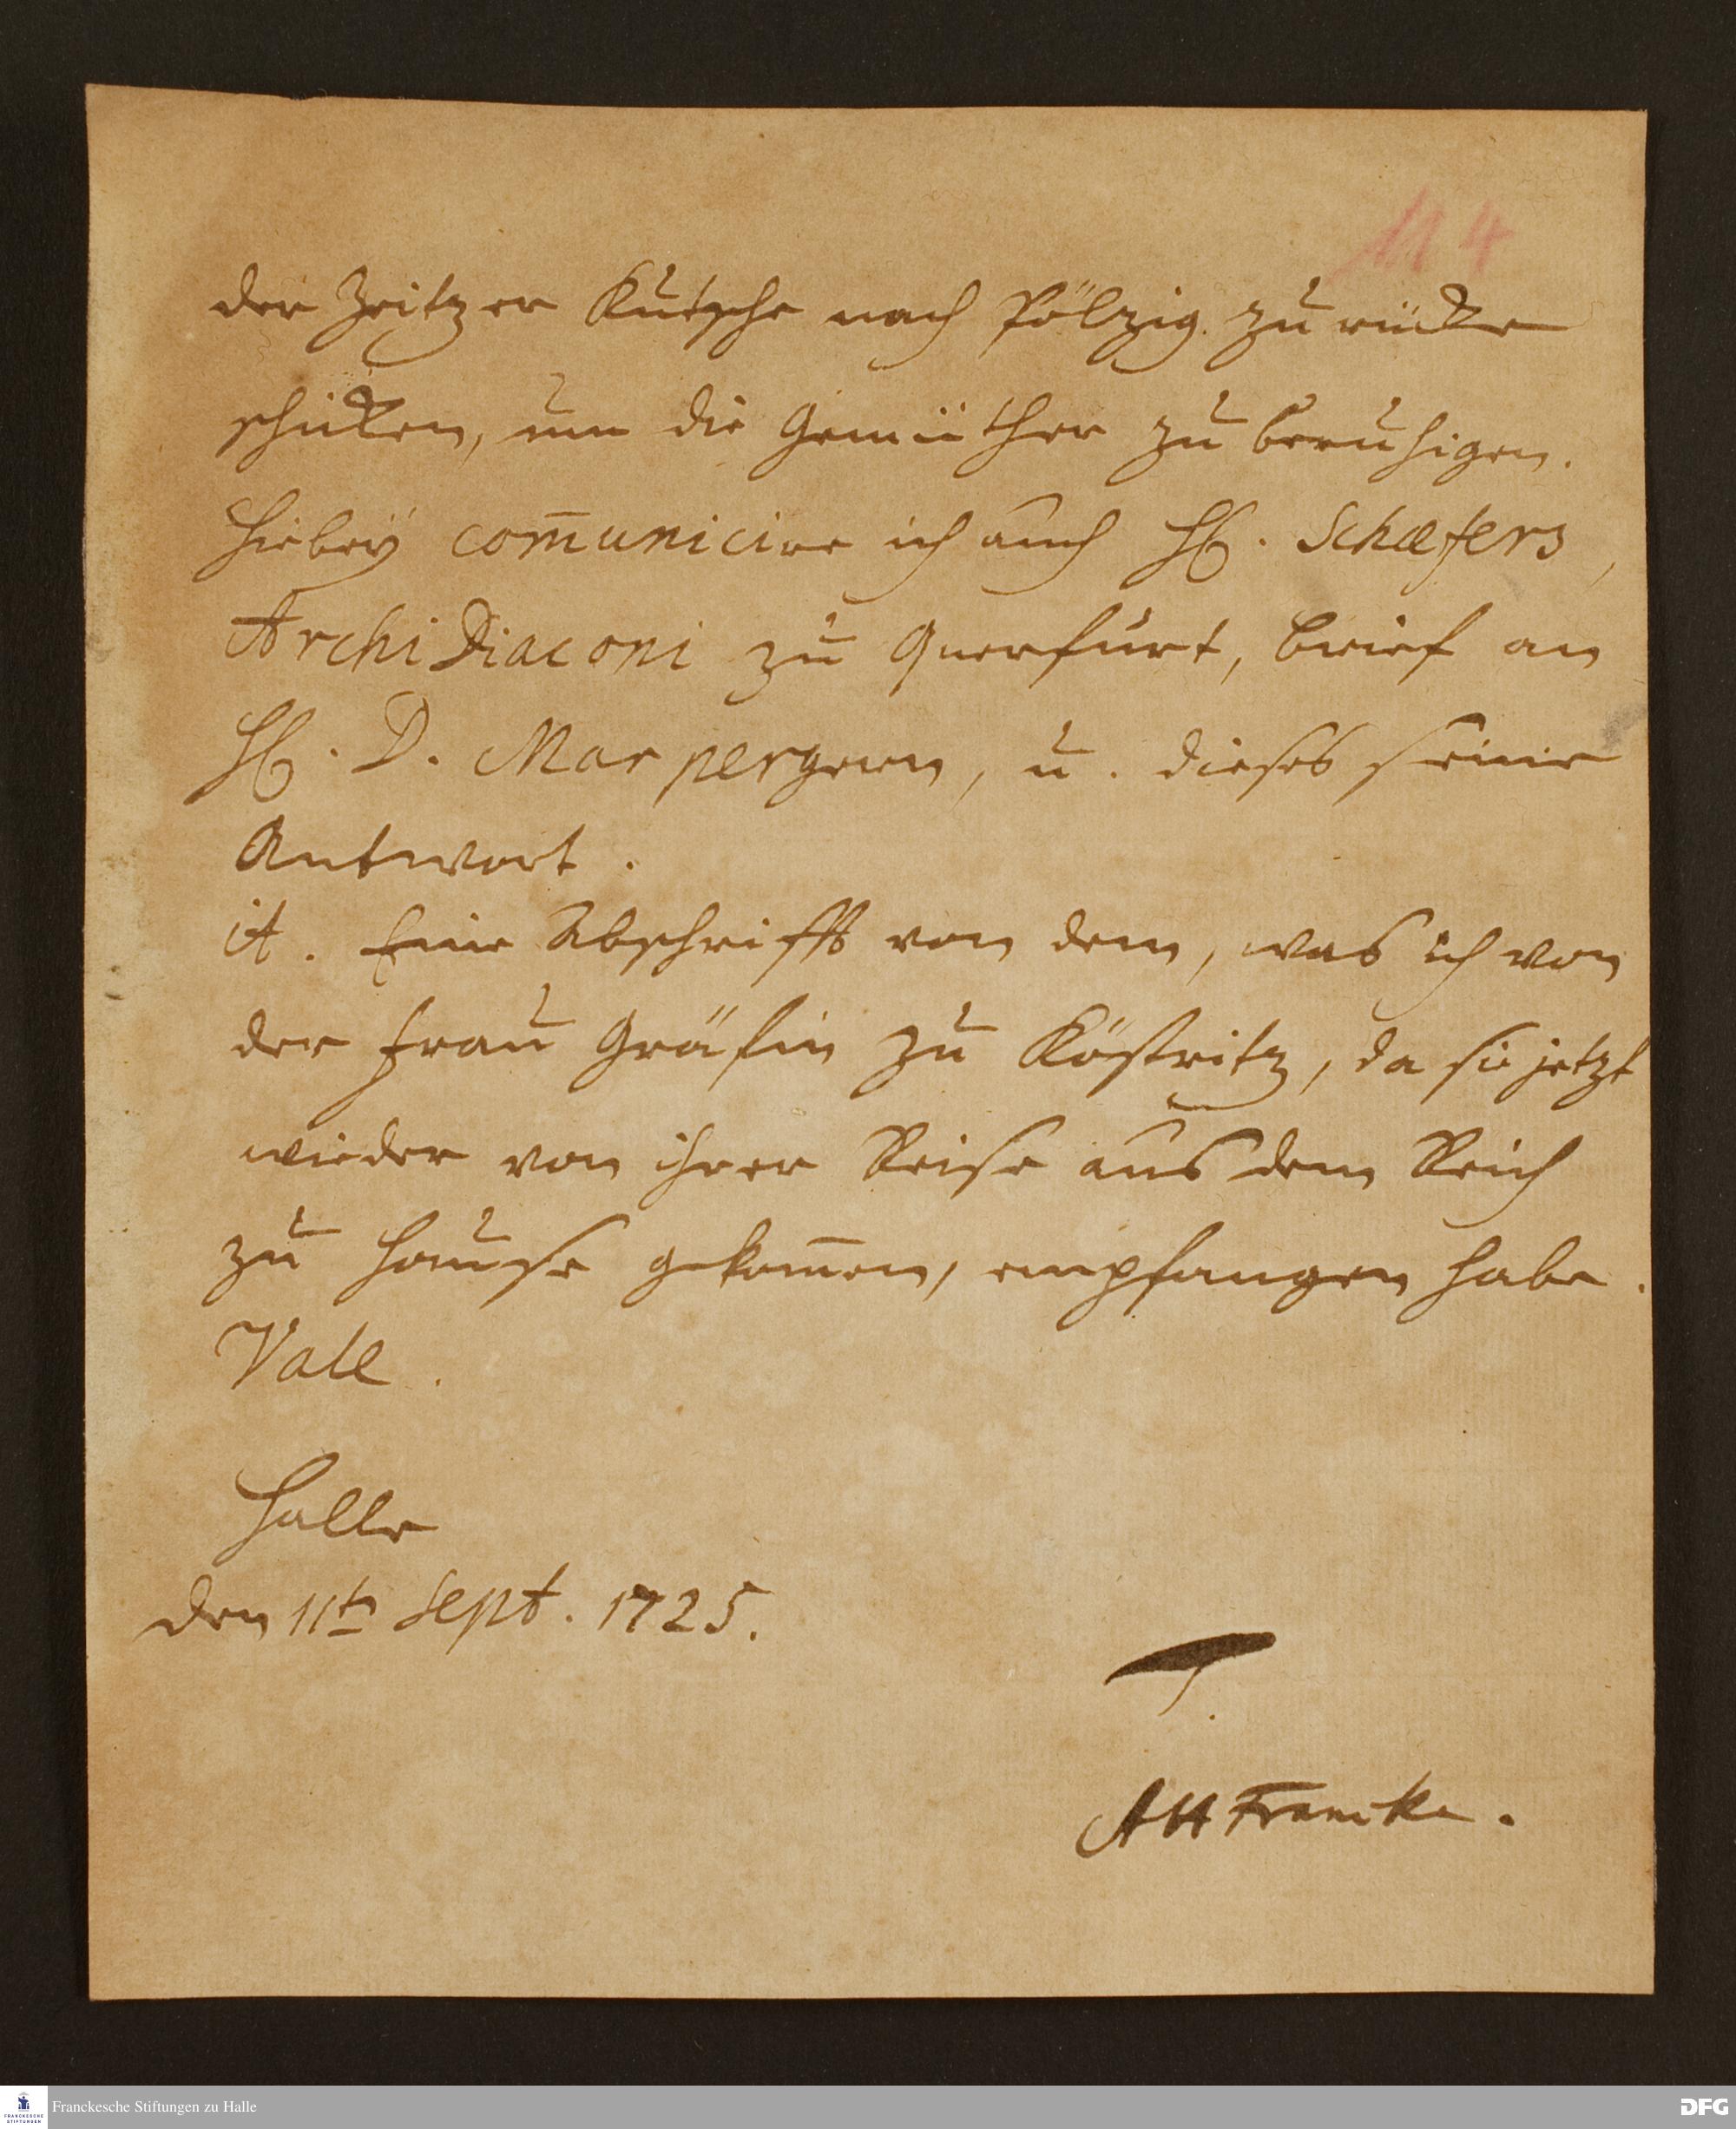 114
der Zeitzer Kutsche nach Pölzig zurücke
schicken, um die Gemüther zu beruhigen.
Hiebey com̄unicire ich auch H. Schæfers,
ArchiDiaconi zu Querfurt, brief an
H. D. Marpergern, u. dieses seine
Antwort.
it. Eine Abschrifft von dem, was ich von
der Frau Gräfin zu Köstritz, da sie jetzt
wieder von ihrer Reise aus dem Reich
zu Hause gekom̄en, empfangen habe.
Vale.
Halle
den 11ten Sept. 1725.
AHFrancke.
Franckesche Stiftungen zu Halle
FRANCKESCHE
STIFTUNGEN
DFG